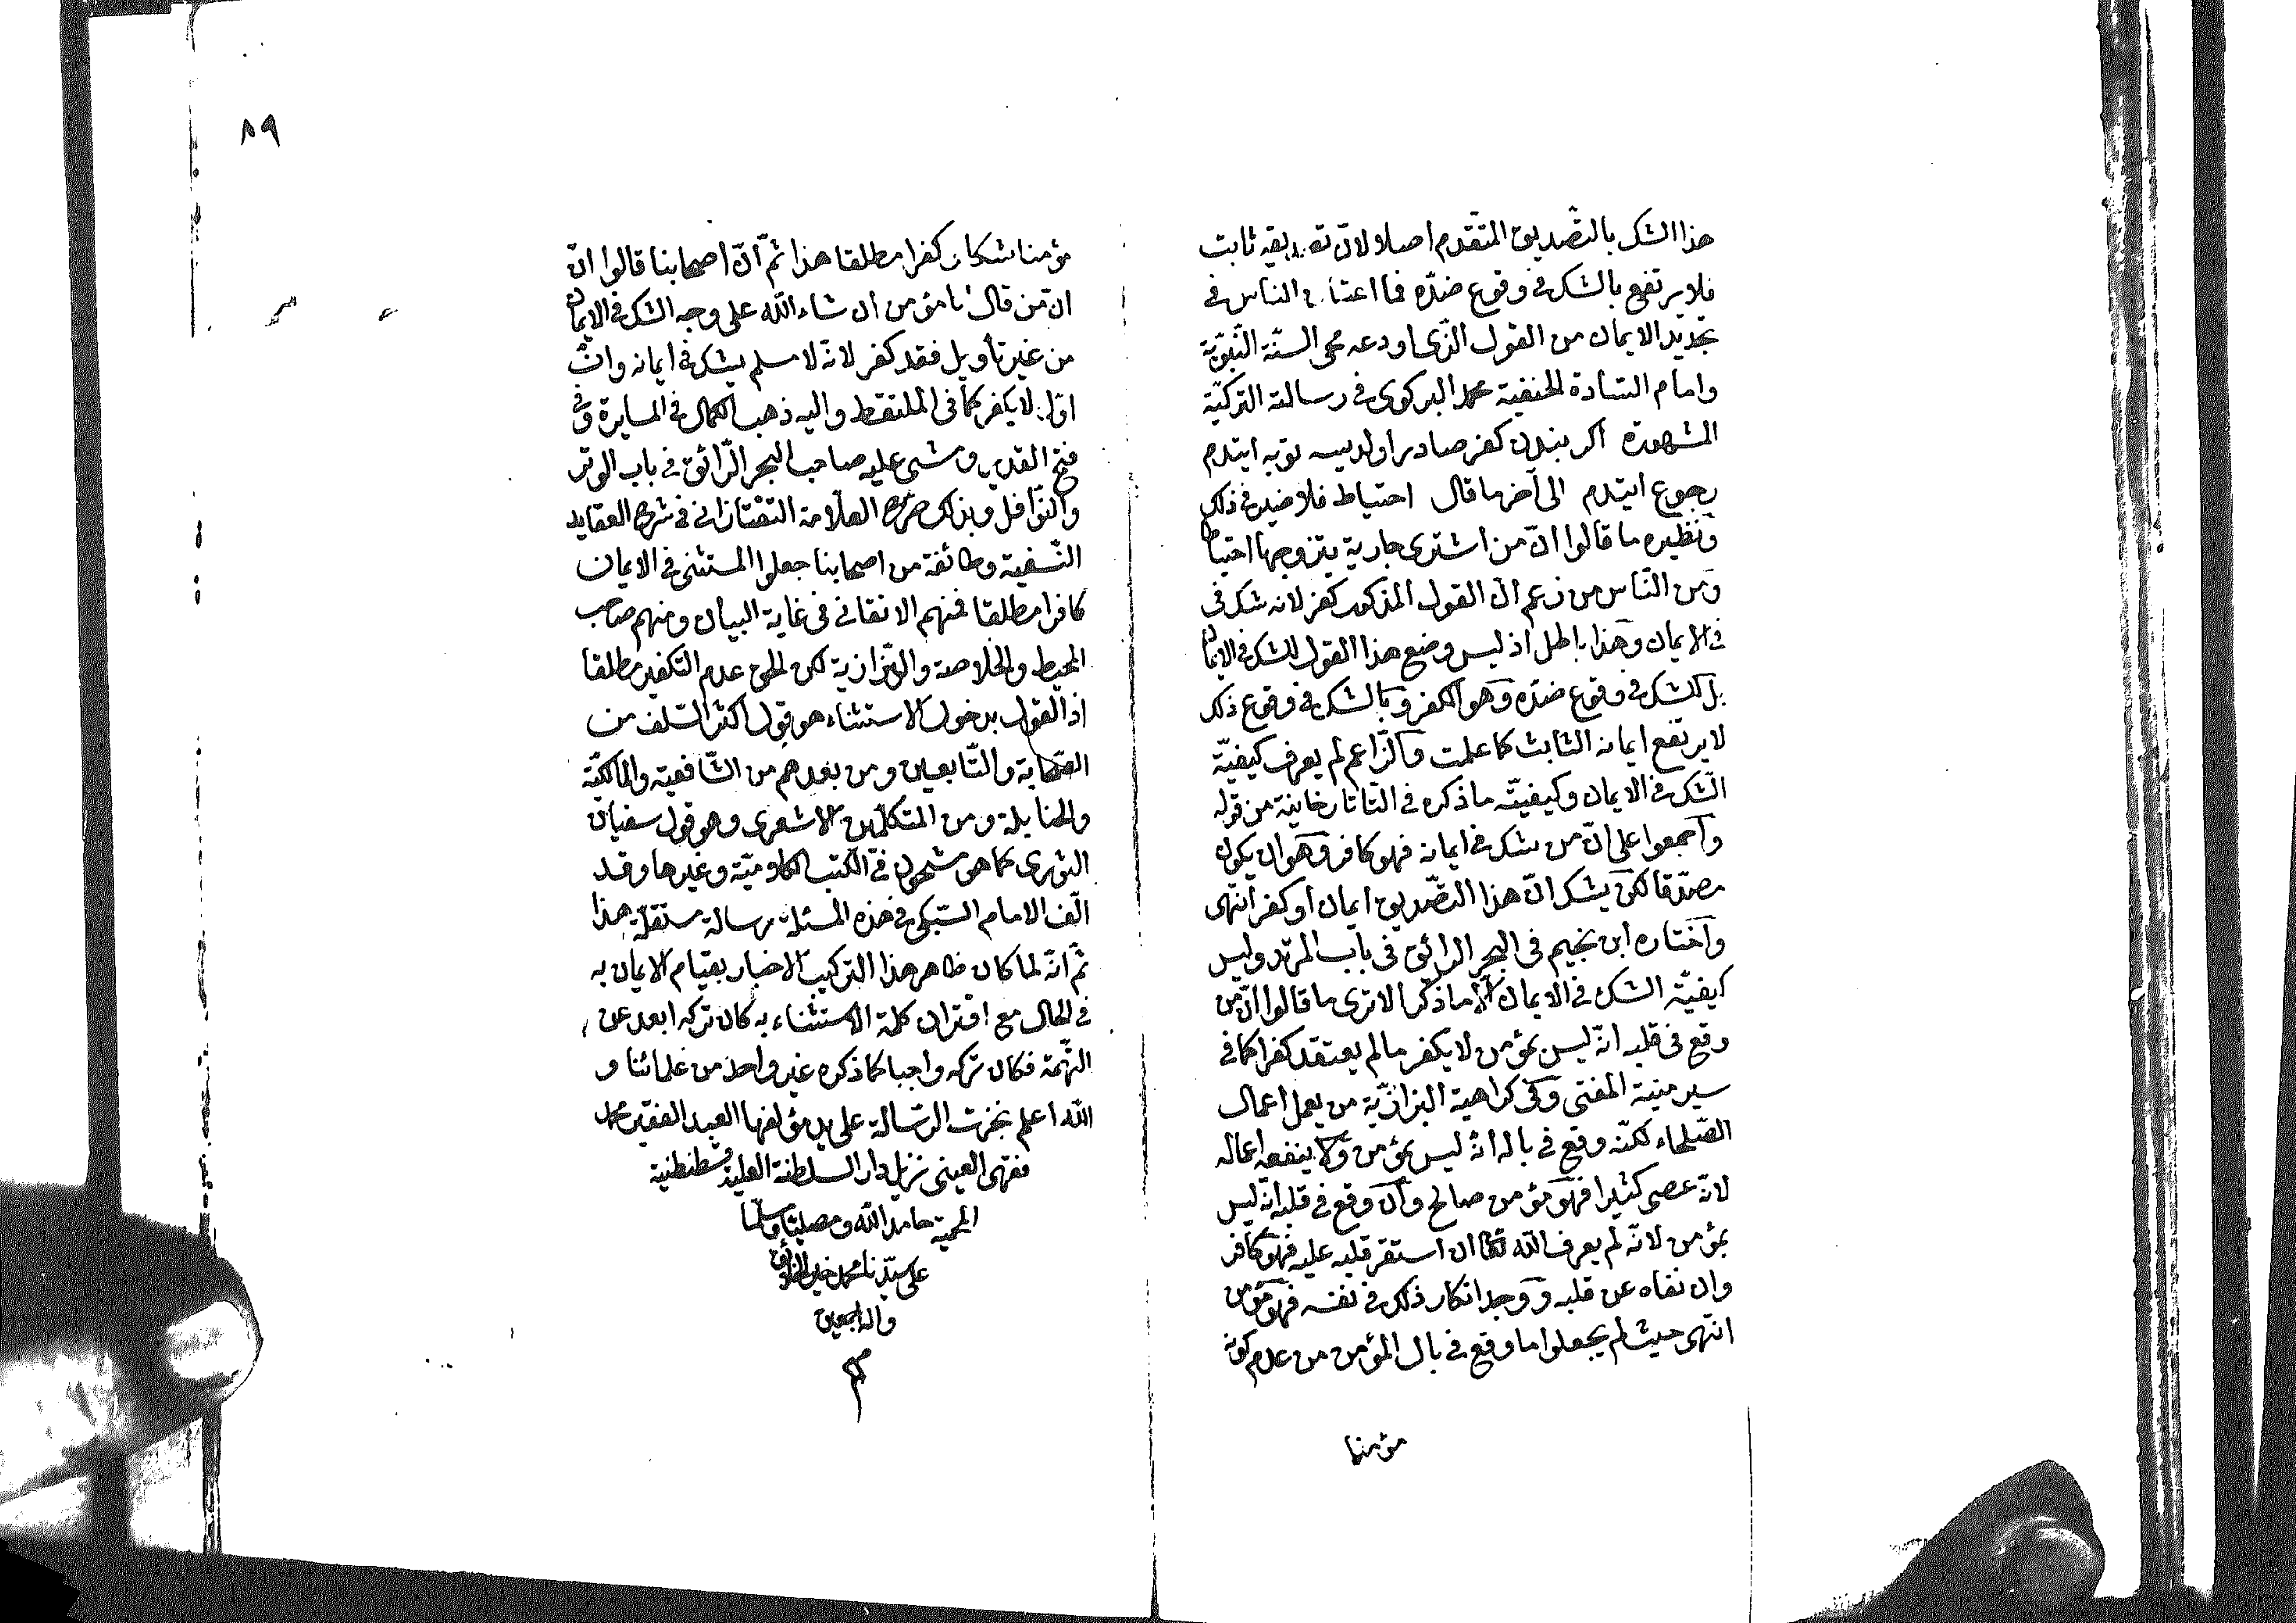 هذا الشك بالتصديق المتقدم اصلا لانّ تصديقه ثابت
فلا يرتفع بالشك في وقوع ضدّه فما اعتاد الناس في
تجديد الايمان من القول الذى اودعه محى السنّة النّبويّة
وامام السّادة الحنفية محمد البركوى في رسالته التركيّة
المشهورة اكر بندن كفر صادر اولديسه توبه ايتدم
رجوع ايتدم الى آخر ما قال احتياط فلا ضير في ذلك
ونظيره ما قالوا انّ من اشترى جارية يتزوجها احتياطا
ومن النّاس من زعم انّ القول المذكور كفر لانه شك في
في الايمان وهذا باطل اذ ليس وضع هذا القول للشك في الايمان
بل للشك في وقوع ضدّه وهو الكفر وبالشك في وقوع ذلك
لا يرتفع ايمانه الثابت كما علمت والزّاعم لم يعرف كيفيّة
الشك في الايمان وكيفيتّه ما ذكره في التّاتارخانية من قوله
واجمعوا على انّ من شك في ايمانه فهو كافر وهو ان يكون
مصدّقا لكن يشك انّ هذا التصّديق ايمان او كفر انتهى
واختاره ابن نجيم في البحر الرائق في باب المرتد وليس
كيفيّة الشك في الايمان الا ما ذكر الا ترى ما قالوا انّ من
وقع في قلبه انّه ليس بمؤمن لا يكفر ما لم يعتقد كفرا كما في
سير منية المفتى وفي كراهية البزازيّة من يعمل اعمال
الصّلحاء لكنّه وقع في باله انّه ليس بمؤمن ولا ينفعه اعماله
لانّه عصى كثيرا فهو مؤمن صالح وان وقع في قلبه انّه ليس
بمؤمن لانّه لم يعرف الله تعالى ان استقر قلبه عليه فهو كافر
وان نفاه عن قلبه ووجد انكار ذلك في نفسه فهو مؤمن
انتهى حيث لم يجعلوا ما وقع في بال المؤمن من عدم كونه
مؤمنا
٨٩
مؤمنا شكا وكفرا مطلقا هذا ثمّ انّ اصحابنا قالوا انّ
انّ من قال انا مؤمن ان شاء الله على وجه الشك في الايمان
من غير تأويل فقد كفر لانّه لا مسلم يشك في ايمانه وان
اوّل لا يكفر كما في الملتقط واليه ذهب الكمال في المسايرة وفي
فتح القدير ومشى عليه صاحب البحر الرّائق في باب الوتر
والنّوافل وبذلك صرح العلّامة التفتازاني في شرح العقايد
النّسفية وطائفة من اصحابنا جعلوا المستثنى في الايمان
كافرا مطلقا فمنهم الاتقاني في غاية البيان ومنهم صاحب
المحيط والخلاصة والبّزازية لكن الحق عدم التكفير مطلقا
اذ القول بدخول الاستثناء هو قول اكثر السّلف من
الصّحابة والتّابعين ومن بعدهم من الشّافعية والمالكيّة
والحنابلة ومن المتكلّمين الاشعرى وهو قول سفيان
الثورى كما هو مشحون في الكتب الكلاميّة وغيرها وقد
الّف الامام السّبكى في هذه المسئلة رسالة مستقلّة هذا
ثمّ انّه لما كان ظاهر هذا التركيب الاخبار بقيام الايمان به
في الحال مع اقتران كلمة الاستثناء به كان تركه ابعد عن
التّهمة فكان تركه واجبا كما ذكره غير واحد من علمائنا و
الله اعلم نجزت الرّسالة على يد مؤلفها العبد الفقير محمد
فقهى العينى نزيل دار السلطنة العلية قسطنطنية
المحمية حامدا لله ومصليّا ومسلّما
على سيّدنا محمد خير الخلائق
واله اجمعين